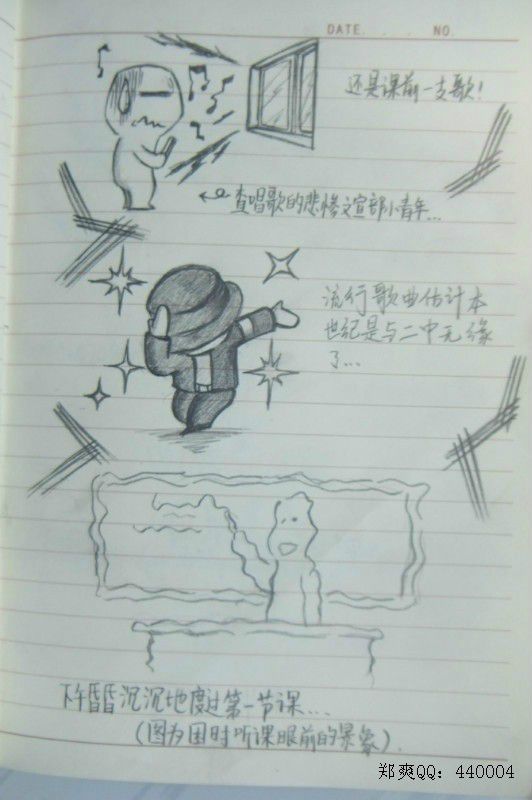 DATE. . . . NO.
还是课前一支歌！
查唱歌的悲惨文宣部小青年...
流行歌曲估计本
世纪是与二中无缘
了...
下午昏昏沉沉地度过第一节课...
(因为困时听课眼前的景象).
郑爽QQ：440004